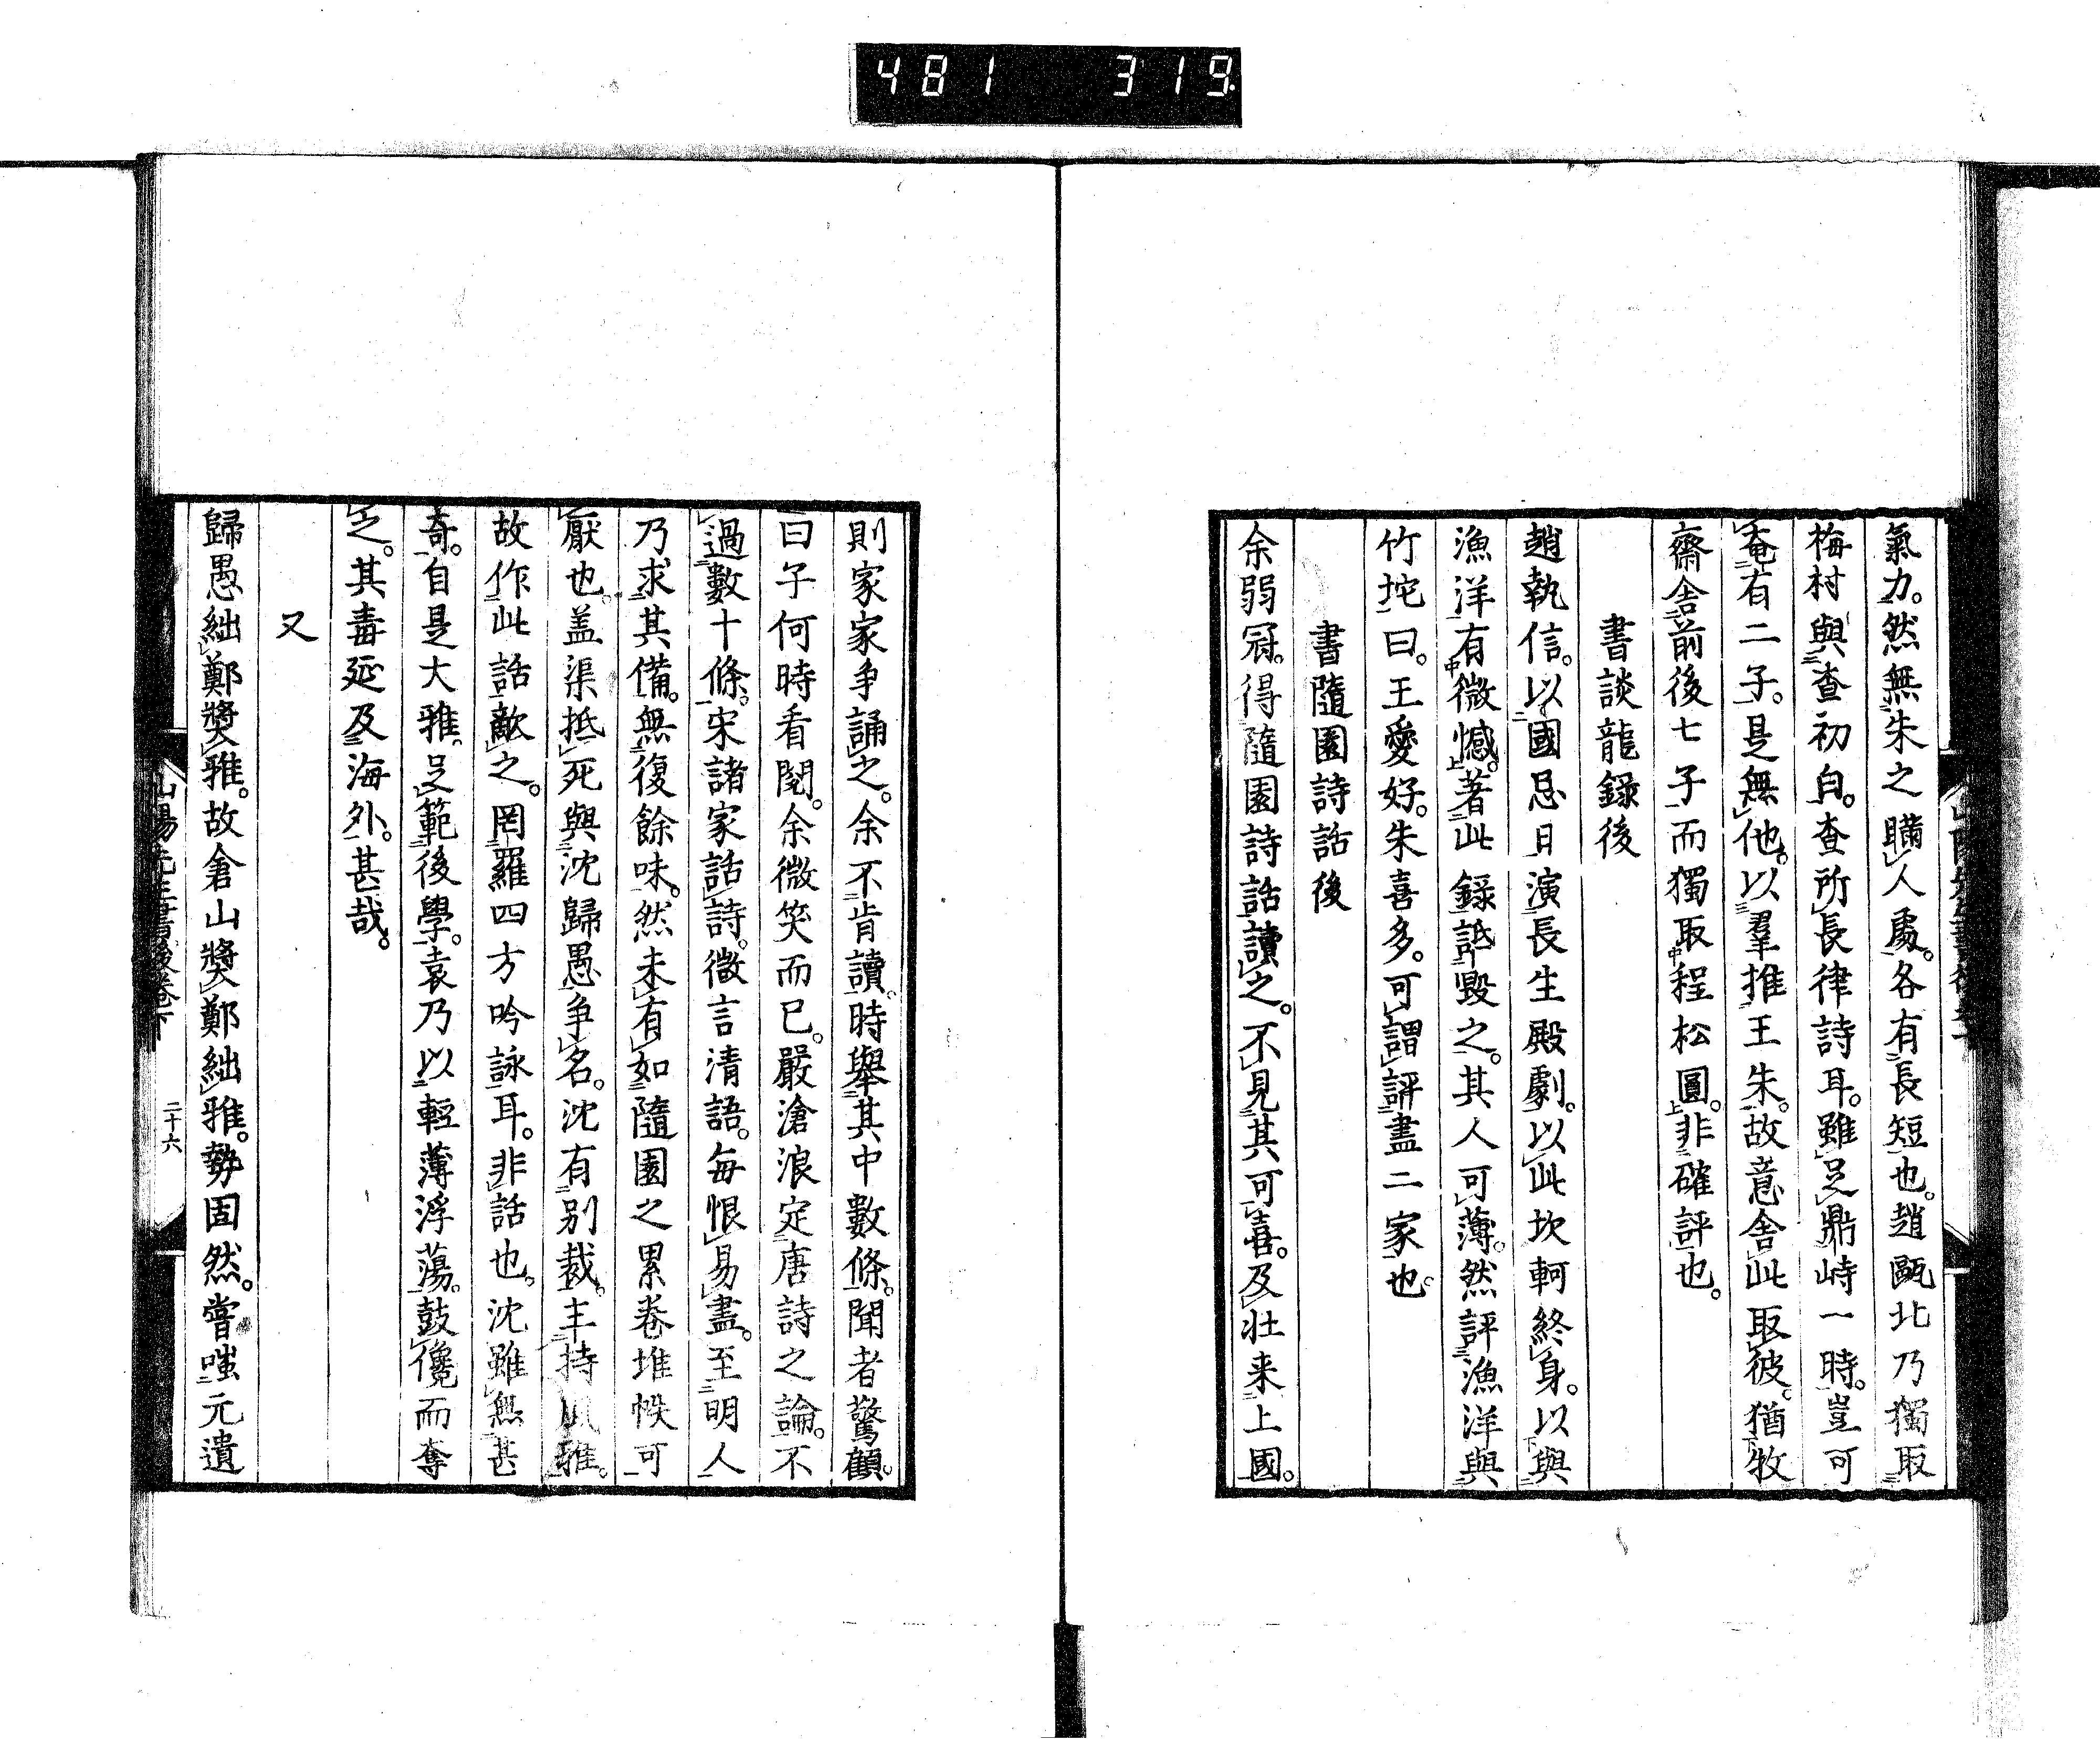 481 319
氣力。然無朱之購人處。各有長短也。趙甌北乃獨取
梅村與查初白。查所長律詩耳。雖足鼎峙一時。豈可
奄有二子。是無他。以羣推王朱。故意舍此取彼。猶牧
齋舍前後七子而獨取程松圓。非確評也。
書談龍録後
趙執信。以國忌日演長生殿劇。以此坎軻終身。以與
漁洋有微憾。著此録詆毀之。其人可薄。然評漁洋與
竹坨曰。王愛好。朱喜多。可謂評盡二家也。
書隨園詩話後
余弱冠。得隨園詩話讀之。不見其可喜。及壯来上國。
則家家爭誦之。余不肯讀。時舉其中數條。聞者驚顧。
曰子何時看閲。余微笑而已。嚴滄浪定唐詩之論。不
過數十條。宋諸家話詩。微言清語。每恨易盡。至明人
乃求其備。無復餘味。然未有如隨園之累卷堆帙可
厭也。盖渠抵死與沈歸愚爭名。沈有别裁。主持風雅。
故作此話敵之。罔羅四方吟詠耳。非話也。沈雖無甚
奇。自是大雅。足範後學。袁乃以輕薄浮蕩。鼓儳而奪
之。其毒延及海外。甚哉。
又
歸愚絀鄭奬雅。故倉山奬鄭絀雅。勢固然。嘗嗤元遺
山陽先生書後卷下 二十六